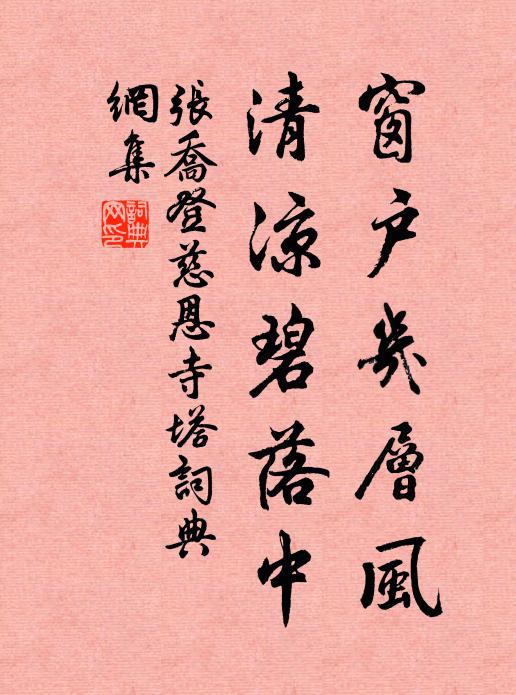 窗户幾層風
清涼碧落中
張喬登慈恩寺塔詞典
網集
詞典
網印